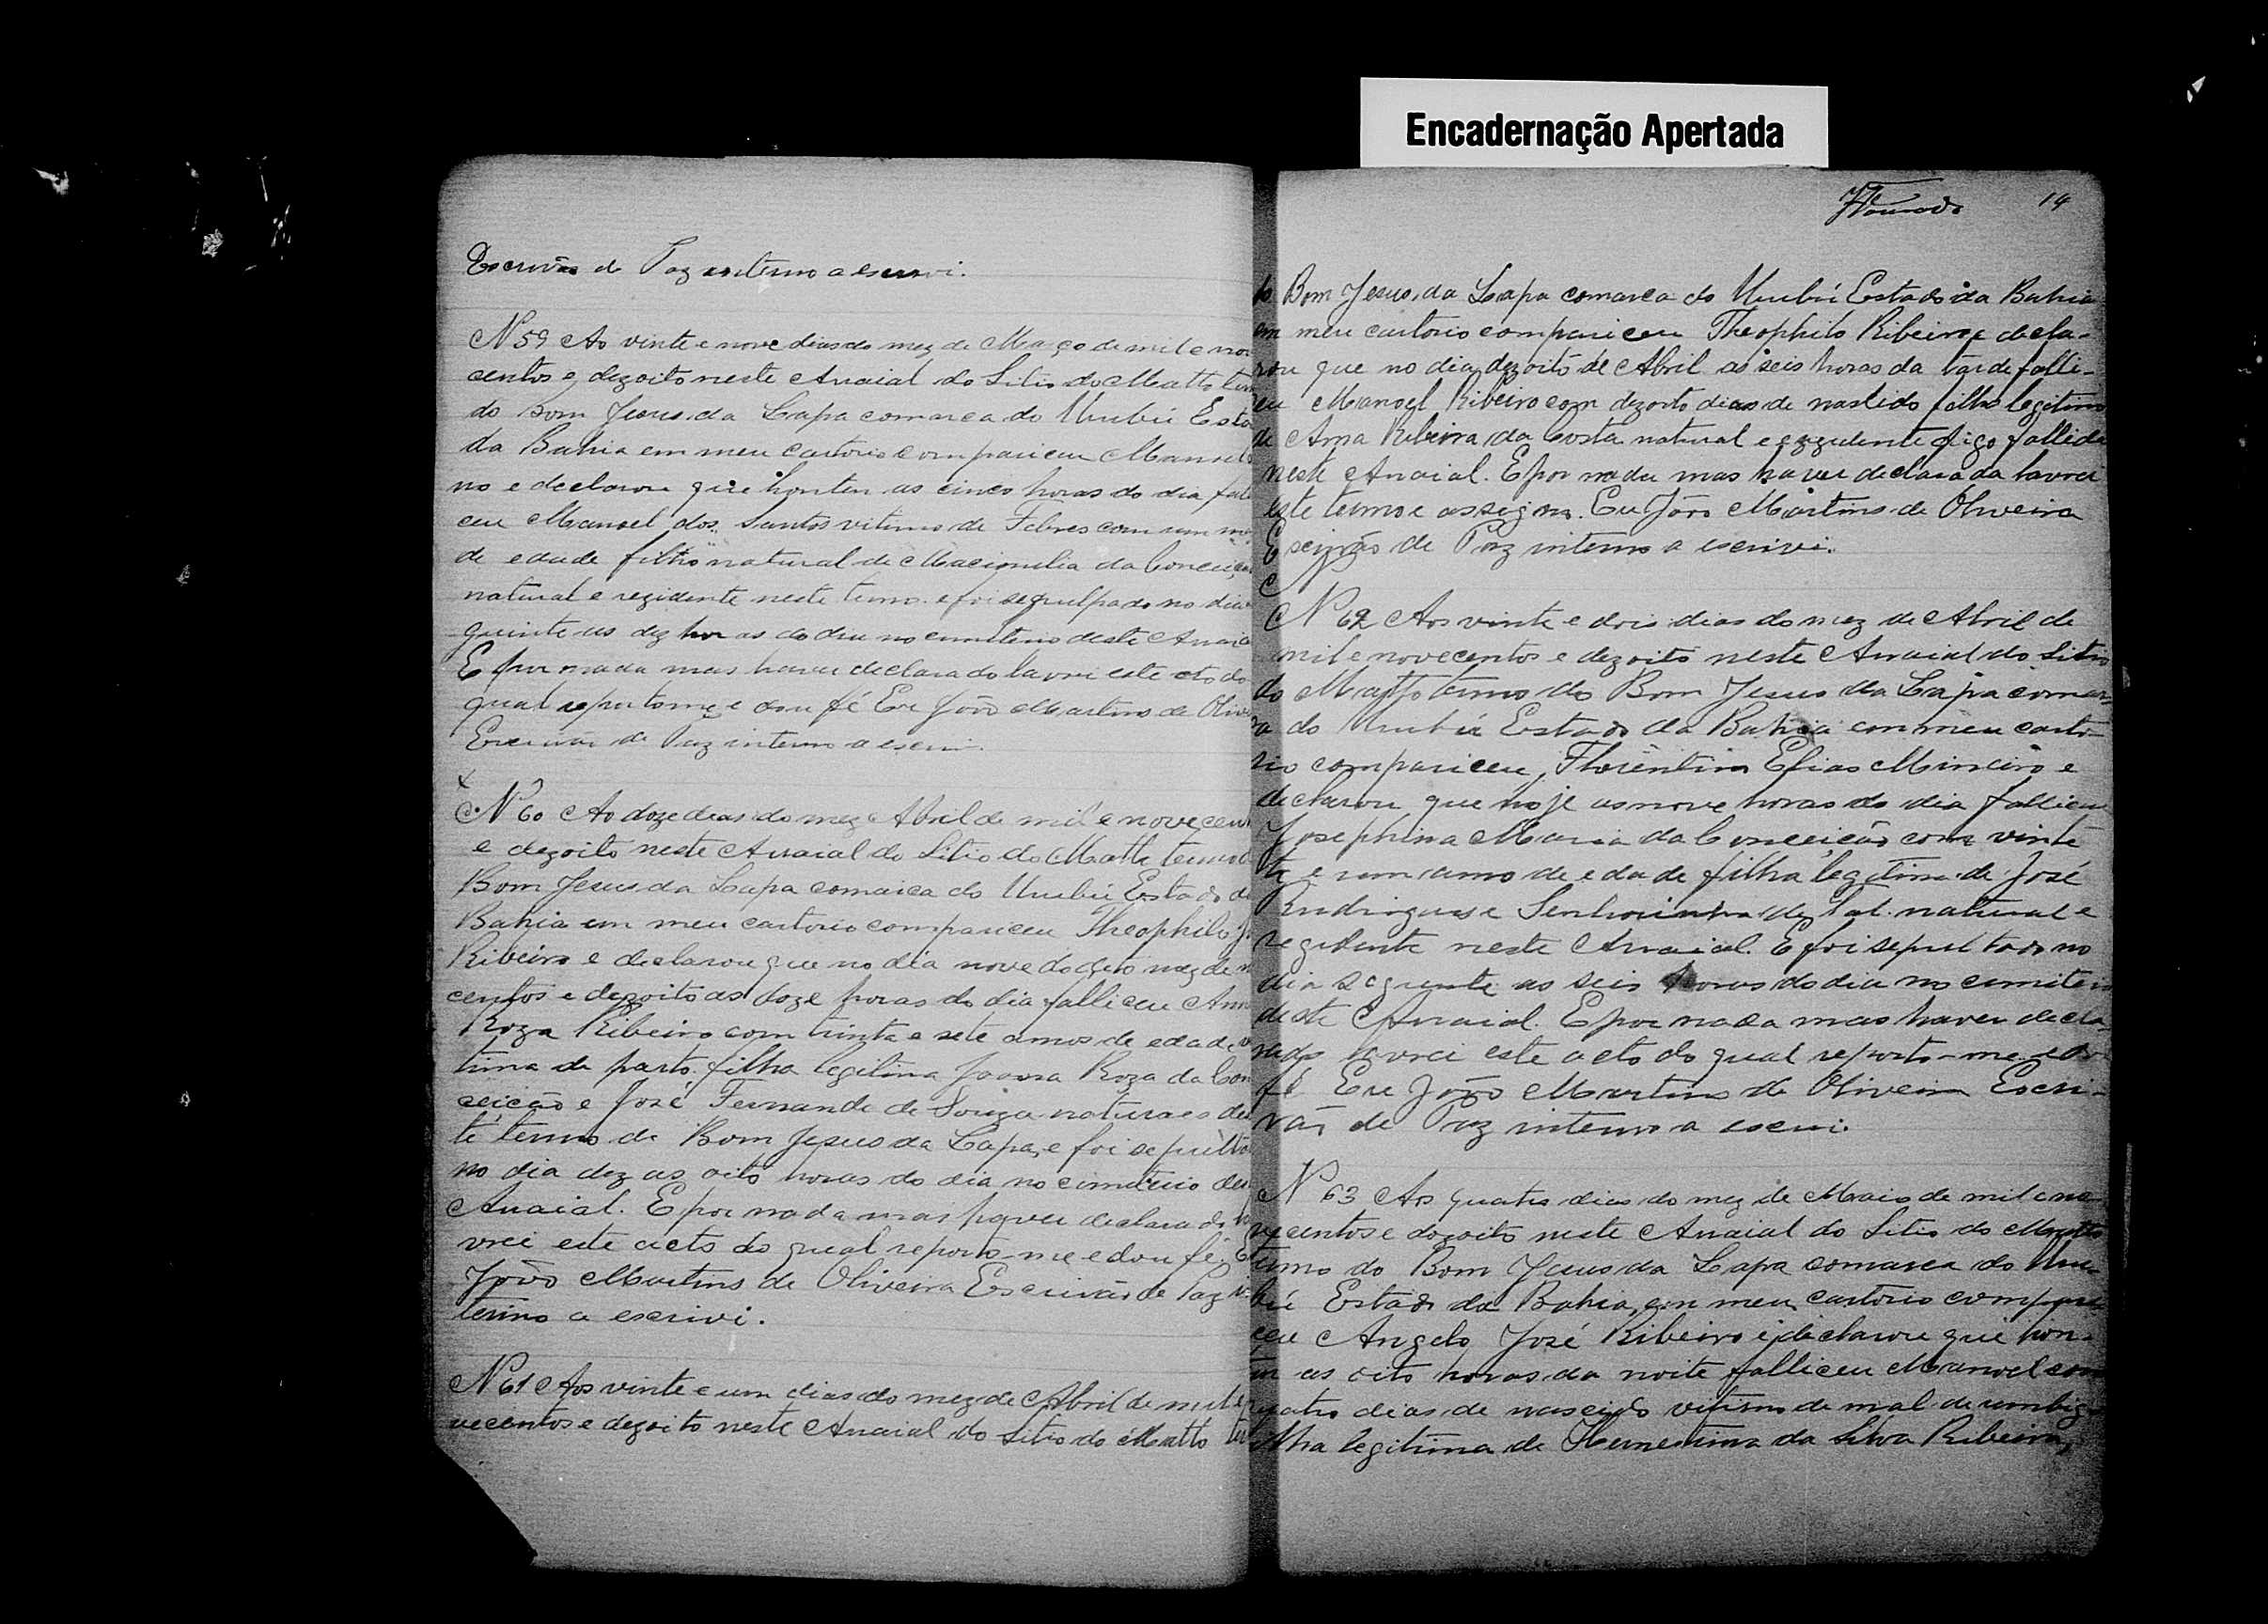 Encadernação Apertada
14
Escrivão de Paz interino a escrevi.
N 59 Ao vinte e nove dias do mez de Março de mil e nov
centos e dezoito neste Arraial do Sitio do Matto ter
do Bom Jesus da Lapa comarca do Urubú Esta
da Bahia em meu cartorio compariceu
no e declarou que hontem as cinco horas do dia fale
ceu Manoel dos Santos vitimo de Febres com um
de edade filho natural de da Conceiçã
natural e rezidente neste termo e foi no dia
guinte as dez horas do dia no cimiterio deste Arraia
E por nada mas haver declarado lavrei este ato do
qual reporto me e dou fé Eu João Martins de Oliv
Escrivão de Paz interino a escrvi.
N 60 Ao doze dias do mez Abril de mil e novecen
e dezoito neste Arraial do Sitio do Matto termo
Bom Jesus da Lapa comarca do Urubú Estado d
Bahia em meu cartorio compariceu Theophilo
Ribeiro e declarou que no dia nove do dito mez de
centos e dezoito as doze horas do dia falliceu Ann
Roza Ribeiro com trinta e sete annos de edade
tima de parto filha legitima Joanna Roza da Con
ceição e José Fernande de Souza naturaes des
te termo de Bom Jesus da Lapa, e foi sepulta
no dia dez as oito horas do dia no cimiterio des
Arraial. E por nada mas haver declarado la
vrei este acto do qual reporto-me e dou fé. E
João Martins de Oliveira Escrivão de Paz in
terino a escrivi.
N 61 Aos vinte e um dias do mez de Abril de mil e
vecentos e dezoito neste Arraial do Sitio do Matto ter
do Bom Jesus, da Lapa comarca do Urubú Estado da Bahia
em meu cartorio compariceu Theophilo Ribeiro e decla-
rou que no dia dezoito de Abril as seis horas da tarde falli-
ceu Manoel Ribeiro com dezoito dias de nascido filho legitimo
de Anna Ribeira da Costa natural e digo fallida
neste Arraial. E por nada mas haver declarada lavrei
este termo e assigno. Eu João Martins de Oliveira
Escrivão de Paz interino a escrivi.
N 62 Aos vinte e dois dias do mez de Abril de
mil e novecentos e dezoito neste Arraial do Sitio
do Matto termo do Bom Jesus da Lapa comar
ca do Urubú Estado da Bahia em meu carto-
rio compariceu Florentino Elias Mineiro e
declarou que hoje as nove horas do dia falliceu
Josephina Maria da Conceição com vinte
te e um anno de edade filha legitima de José
Rudrigues e Senhorinha de natural e
rezidente neste Arraial. E foi sepultado no
dia seguente as seis horas do dia no cimiterio
deste Arraial. E por nada mas haver decla
rado lavrei este acto do qual reporto-me e dou
fé Eu João Martins de Oliveira Escri-
vão de Paz interino a escrvi.
N 63 Aos quatro dias do mez de Maio de mil e no
vecentos e dezoito neste Arraial do Sitio do Matto
termo do Bom Jesus da Lapa comarca do Uru-
bú Estado da Bahia, em meu cartorio compari
ceu Angelo José Ribeiro e declarou que hon-
tem as oito horas da noite falliceu Manoel com
quatro dias de nascido vitimo de mal de umbigo
filha legitima de da Silva Ribeiro,